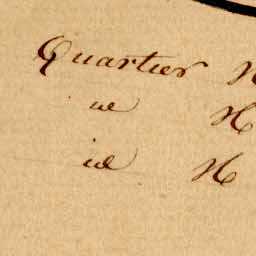 Quartier N
id N
id N